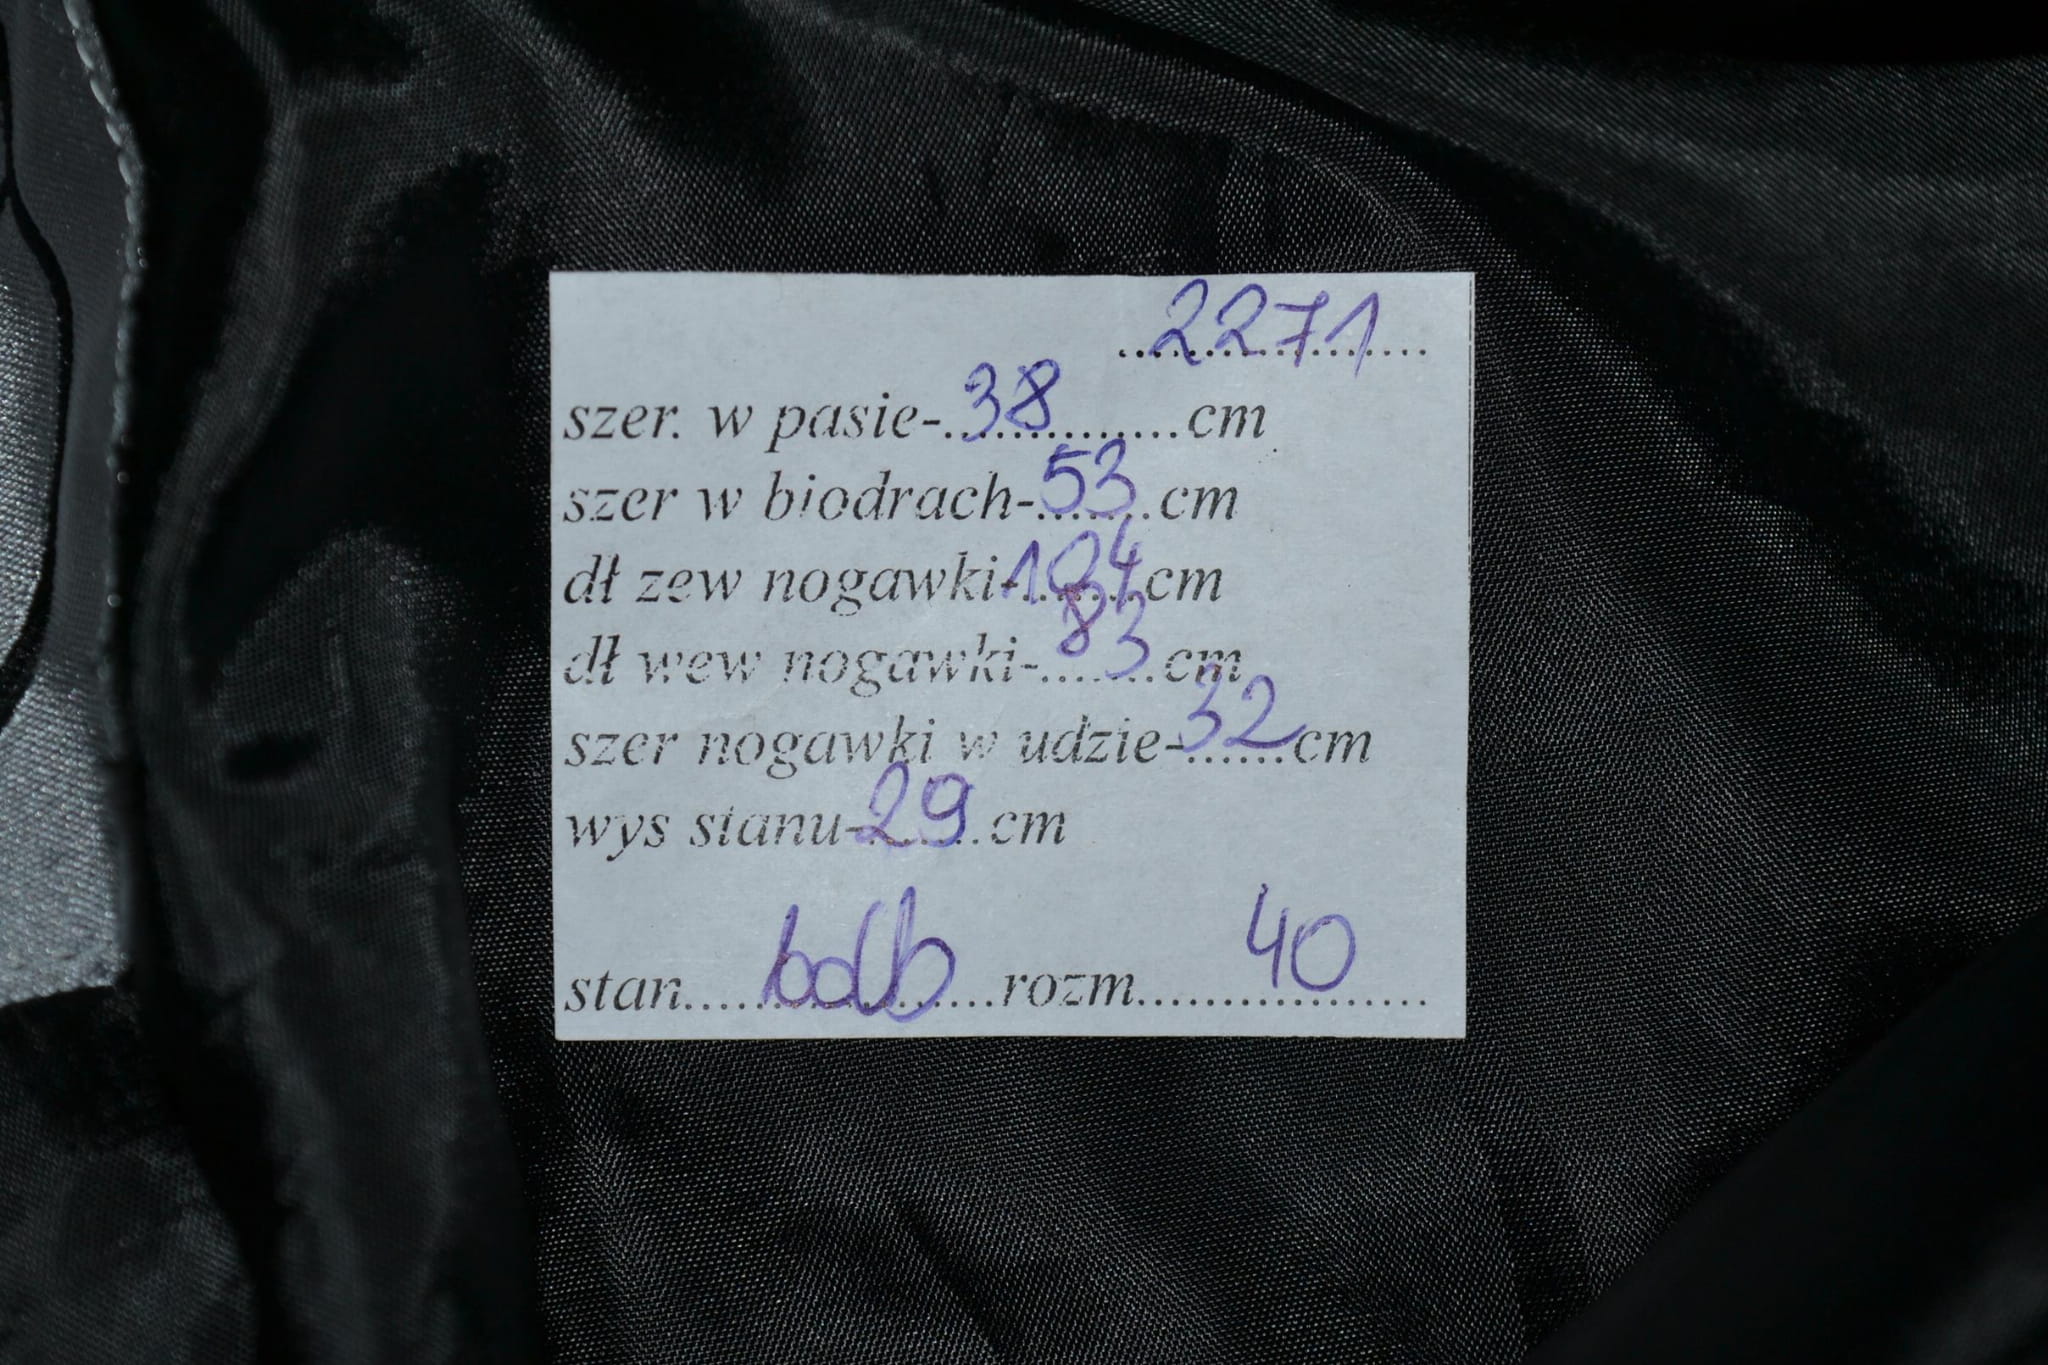 2271
szer. w pasie-.38.........cm
szer w biodrach-.53..cm
dł zew nogawki-104cm
dł wew nogawki-..83..cm
szer nogawki w udzie-32cm
wys stanu-29.cm
stan......bdb......rozm....40.......